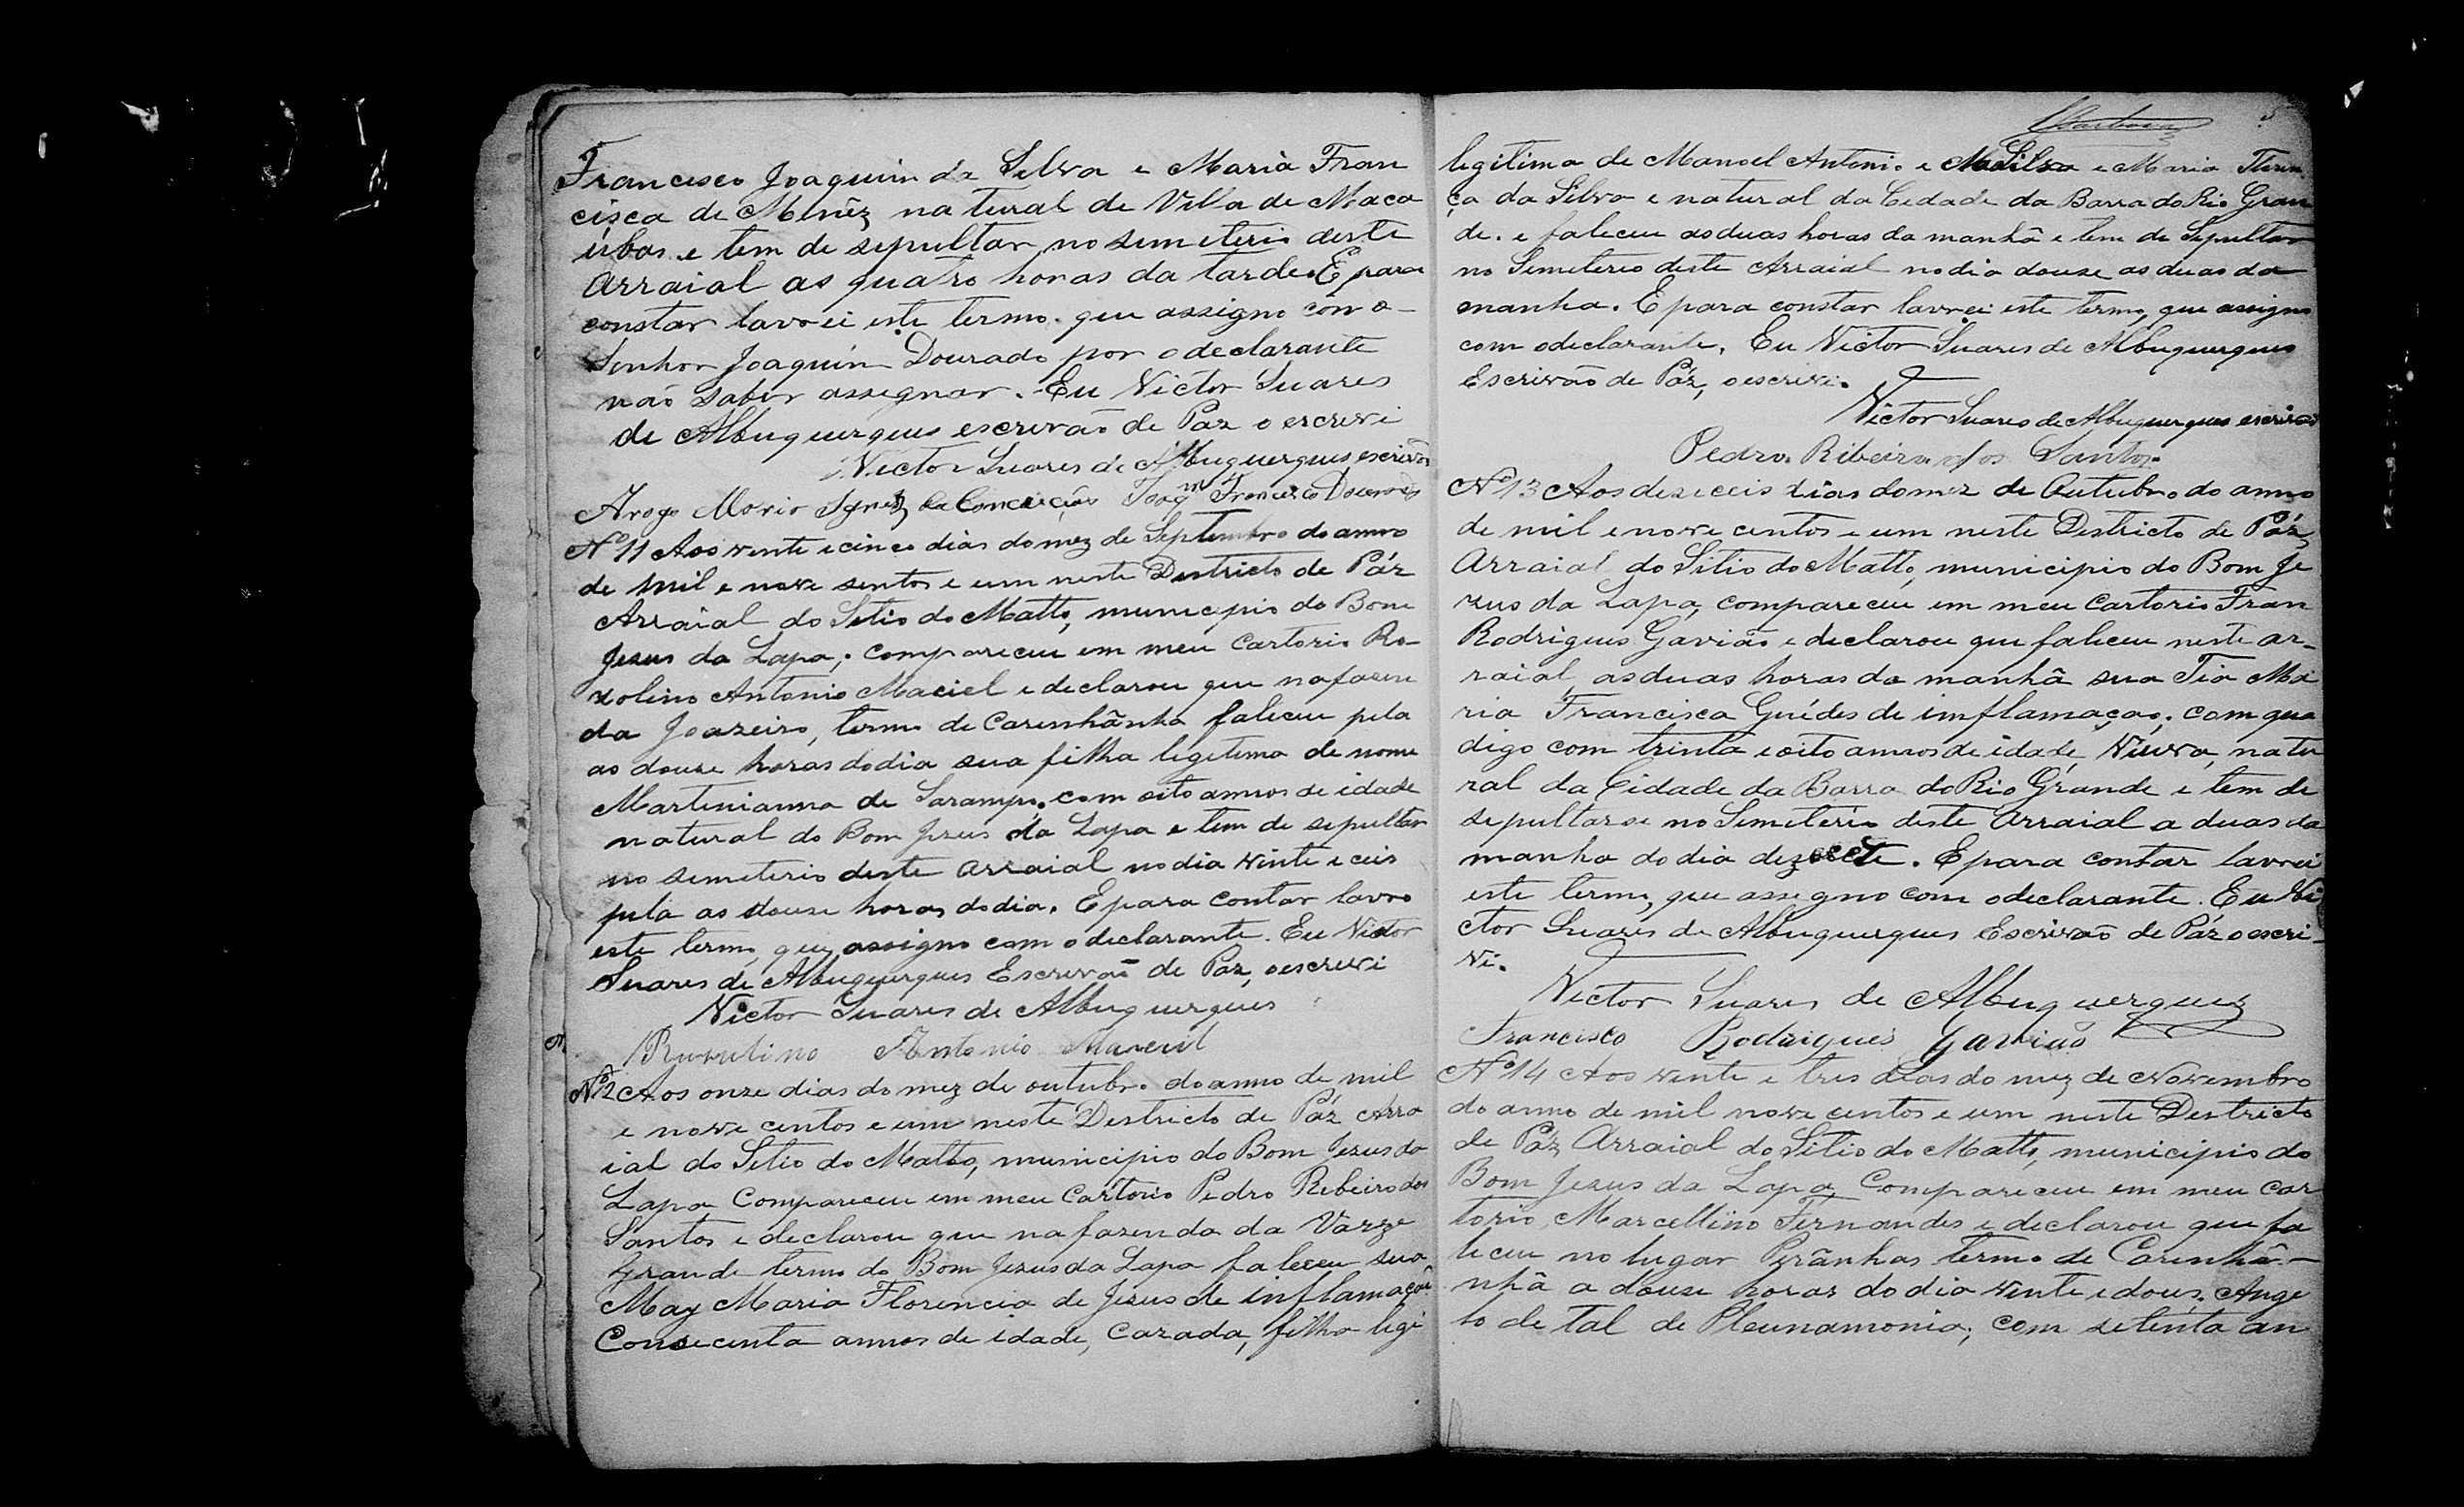 Francisco Joaquim da Silva e Maria Fran
cisca de Menêz natural de Villa de Maca
úbas e tem de sepultar no semeterio deste
Arraial as quatro horas da tarde. E para
constar lavrei este termo que assigno com o
Senhor Joaquim Dourado por o declarante
não saber assegnar. Eu Victor Suares
de Albuquerques escrevão de Paz o escrevi
Victor Suares de Albuquerques escrivão
Arogo Maria Ignez da Conceição Joaqm Francisco Dourado
Nº 11 Aos vente e cinco dias do mez de Septembro do anno
de mil e nove sentos e um neste Destricto de Páz
Arraial do Setio do Matto, municepio do Bom
Jesus da Lapa; compareceu em meu Cartorio Ro-
zolino Antonio Maciel e declarou que na fazen
da Joazeiro, termo de Carenhãnha faleceu pela
as douze horas do dia sua filha legetema de nome
Martenianna de Sarampo, com oito annos de idade
natural do Bom Jesus da Lapa e tem de sepultar
no semeterio deste Arraial no dia vinte e ceis
pela as douze horas do dia. E para contar lavro
este termo, que assigno com o declarante. Eu Victor
Suares de Albuquerques Escrevão de Paz, o escrevi
Victor Suares de Albuquerques
Antonio
Nº 12 Aos onze dias do mez de outubro do anno de mil
e nove centos e um neste Destricto de Páz Arra
ial do Setio do Matto, municipio do Bom Jezus da
Lapa Compareceu em meu Cartorio Pedro Rebeiro dos
Santos e declarou que na fazenda da Varge
Grande termo do Bom Jezus da Lapa faleceu sua
May Maria Florencia de Jesus de inflamação
Con secenta annos de idade, cazada, filha legi
legitima de Manoel Antonio e Maria
ça da Silva e natural da Cedade da Barra do Rio Gran
de. e faleceu as duas horas da manhã e tem de Sepultar
no Semeterio deste Arraial no dia douze as duas da
manha. E para constar lavrei este termo, que assigno
com o declarante. Eu Victor Suares de Albuquerques
Escrivão de Páz, o escrevi.
Victor Suares de Albuquerques escrivão
Pedro Ribeiro dos Santos
Nº 13 Aos dezeceis dias do mez de Outubro do anno
de mil e nove centos e um neste Destricto de Páz,
Arraial do Sitio do Matto, municipio do Bom Je
zus da Lapa, compareceu em meu Cartorio Fran
Rodrigues Gavião e declarou que faleceu neste ar-
raial as duas horas da manhã sua Tia Ma
ria Francisca Guédes de imflamação, com qua
digo com trinta e oito annos de idade, Viuva, natu
ral da Cidade da Barra do Rio Grande e tem de
sepultarse no Semetério deste Arraial a duas da
manha do dia dezecete. E para contar lavrei
este termo, que assegno com o declarante. Eu Vi
ctor Suares de Albuquerques Escrivão de Páz o escri-
vi.
Victor Suares de Albuquerques
Francisco Rodrigues Gavião
Nº 14 Aos vente e tres dias do mez de Novembro
do anno de mil nove centos e um neste Destricto
de Páz Arraial do Sitio do Matto, municipio do
Bom Jezus da Lapa Compareceu em meu Car
torio, Marcellino Fernandes e declarou que fa
leceu no lugar Prãnhas termo de Carinhã-
nhã a douze horas do dia vente e dous. Ange
lo de Tal de Pleunamonia, com setenta an